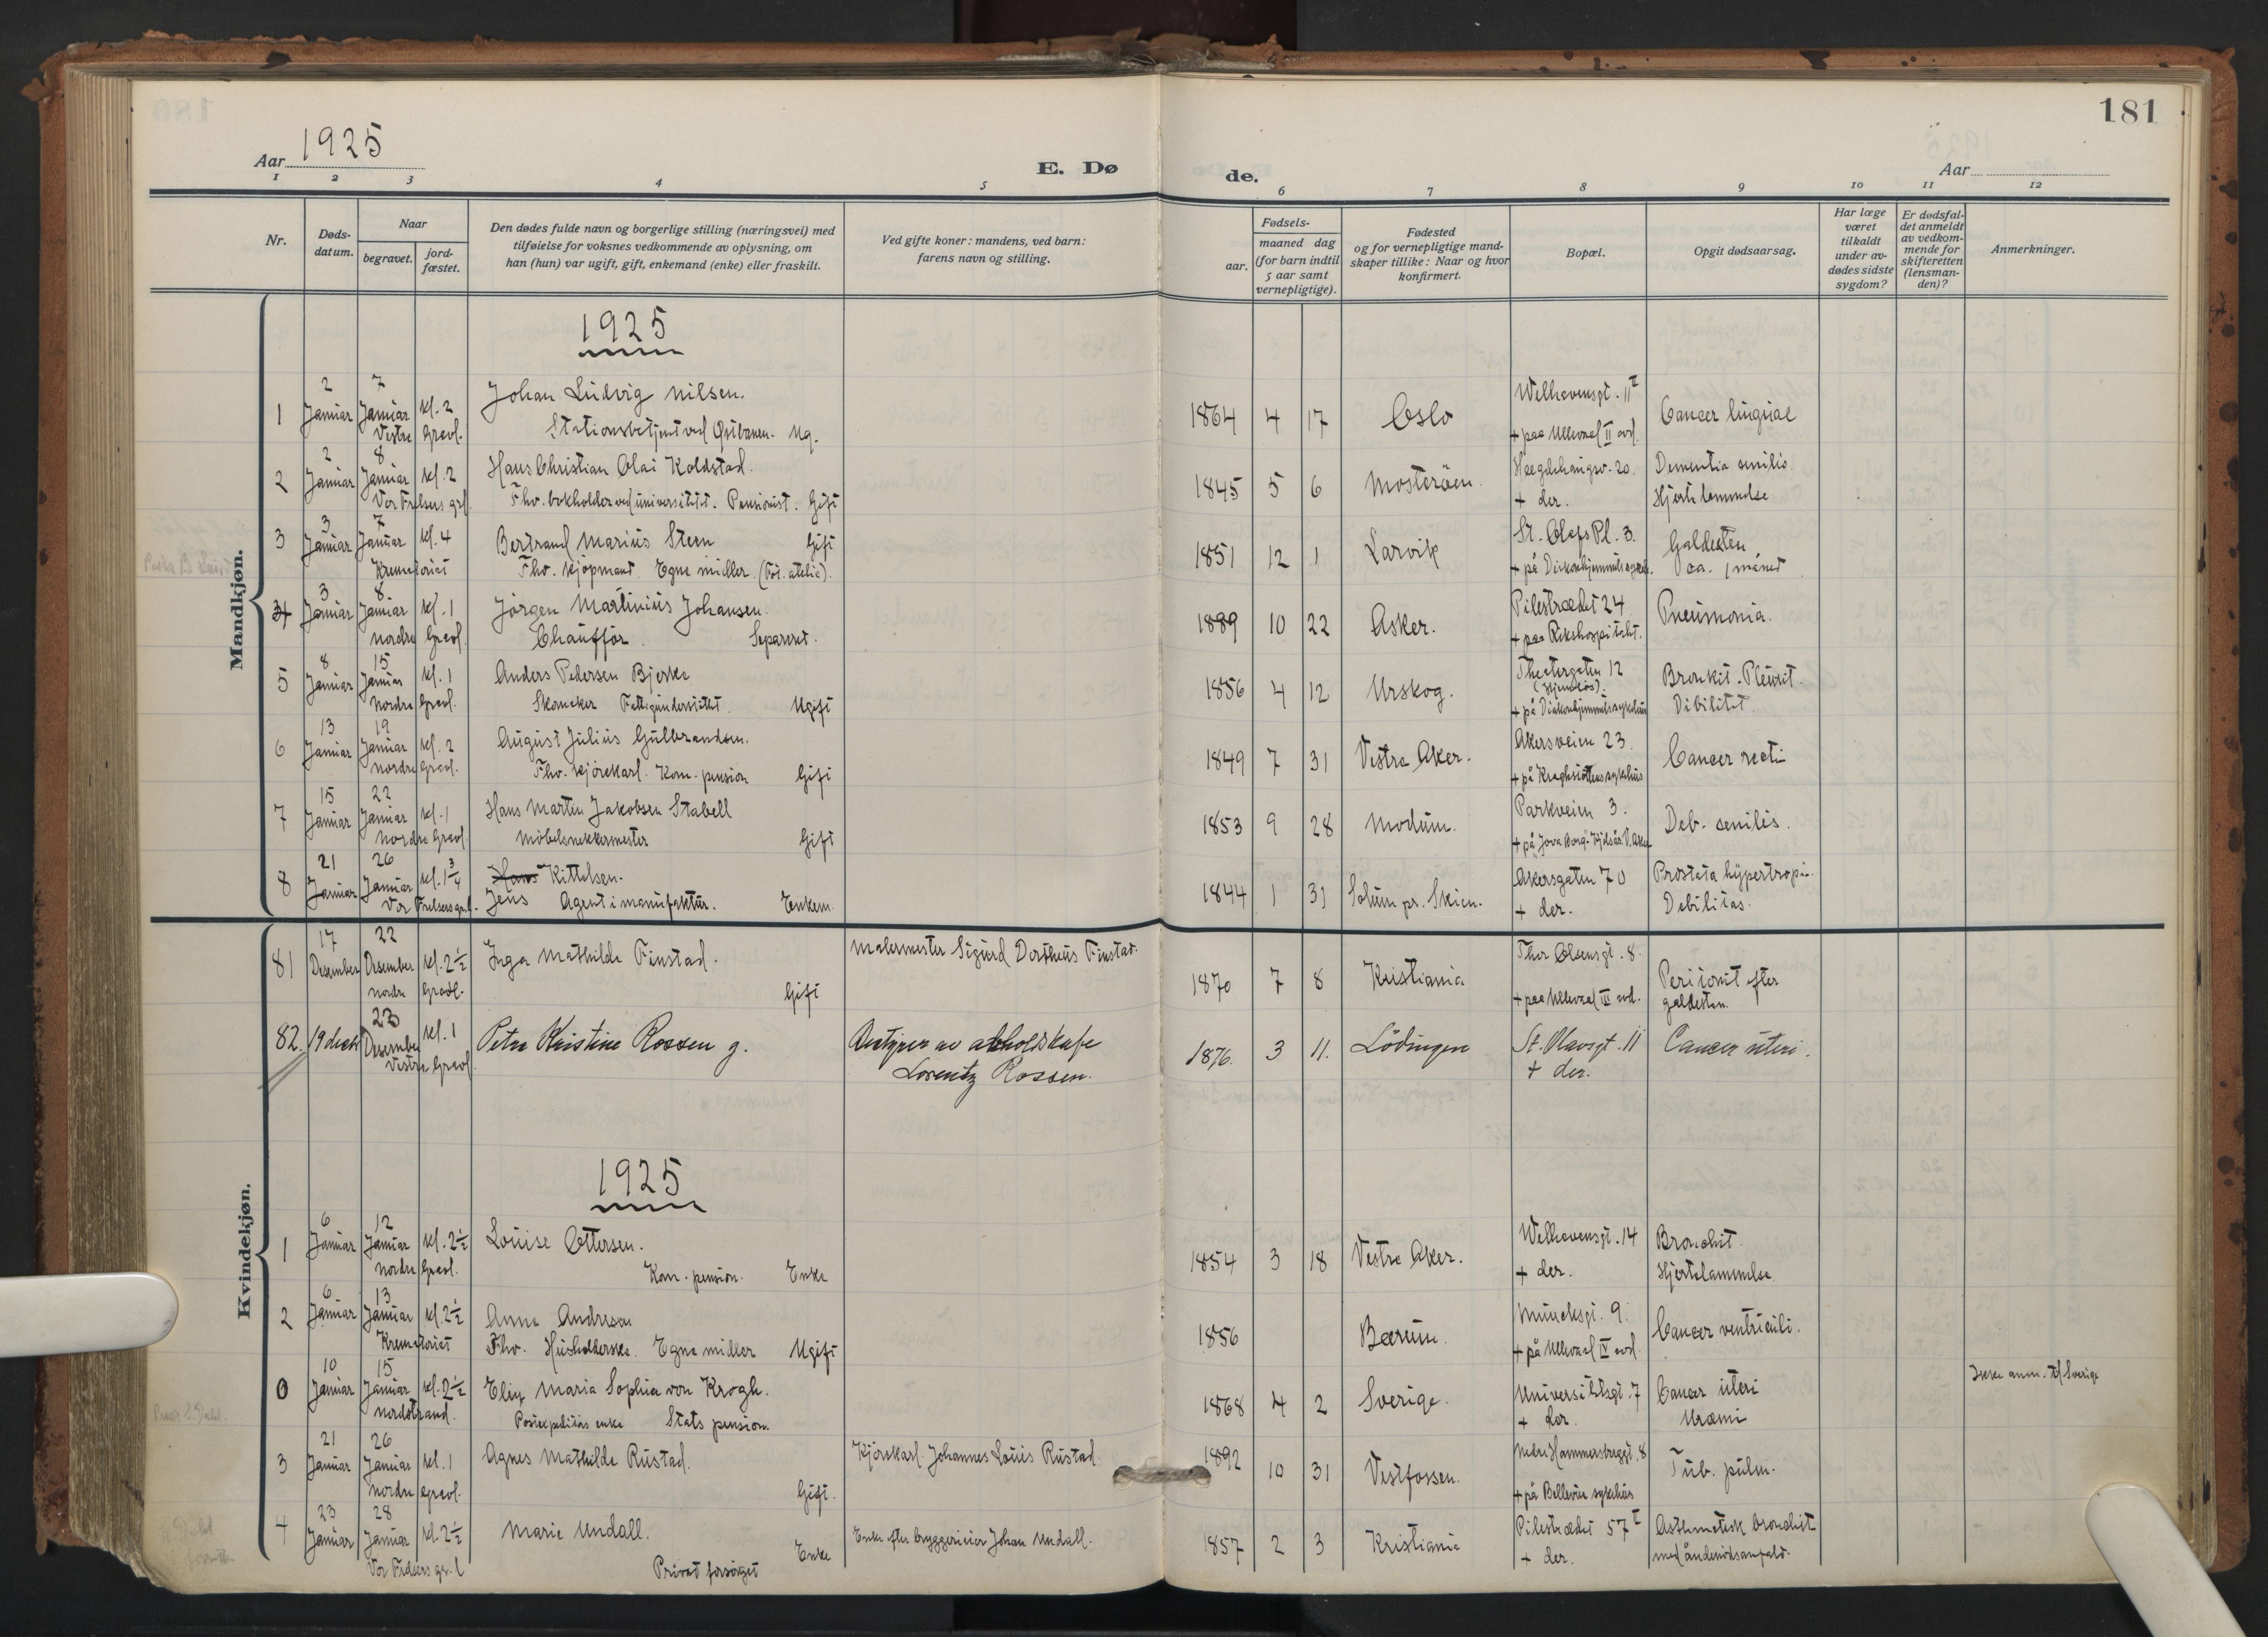 181
Aar 1925
E. Dø
de.
Aar
1 2 3 4 5 6 7 8 9 10 11 12
Nr.
Døds-
datum.
Naar
begravet.
jord-
fæstet.
Den dødes fulde navn og borgerlige stilling (næringsvei) med
tilføielse for voksnes vedkommende av oplysning, om
han (hun) var ugift, gift, enkemand (enke) eller fraskilt.
Ved gifte koner: mandens, ved barn:
farens navn og stilling.
Fødsels-
aar.
maaned dag
(for barn indtil
5 aar samt
vernepligtige).
Fødested
og for vernepligtige mand-
skaper tillike: Naar og hvor
konfirmert.
Bopæl.
Opgit dødsaarsag.
Har læge
været
tilkaldt
under av-
dødes sidste
sygdom?
Er dødsfal-
det anmeldt
av vedkom-
mende for
skifteretten
(lensman-
den)?
Anmerkninger.
Mandkjøn.
1925
1
2
Januar
7
Januar
kl. 2
Vestre Gravl.
Johan Ludvig Nilsen.
Stationsbetjent ved Østbanen. Ug.
1864 4 17
Oslo
Welhavensgt. 11 II
+ paa Ullevaal II avd.
Cancer linguae
2
2
Januar
8
Januar
kl. 2
Vor Frelsers grl.
Hans Christian Olai Koldstad.
Fhv. bokholder ved universitetet. Pensionist. Gift
1845 5 6
Mosterøen.
Hægdehaugsv. 20.
+ der.
Dementia senilis.
Hjertelammelse
3
3
Januar
7
Januar
kl. 4
Krematoriet
Bertrand Marius Steen Gift
Fhv. kjøpmand. Egne midler. (Fot. atelie).
1851 12 1
Larvik
St. Olafs Pl. 3.
+ på Diakonhjemmets sykeh.
Galdesten
ca. 1 måned
4
3
Januar
8
Januar
kl. 1
Nordre Gravl.
Jørgen Martinius Johansen.
Chauffør. Separert.
1889 10 22
Asker.
Pilestrædet 24
+ paa Rikshospitalet.
Pneumonia.
5
8
Januar
15
Januar
kl. 1
Nordre Gravl.
Anders Pedersen Bjerke
Skomaker Fattigunderstøttet. Ugift
1856 4 12
Urskog.
Theatergaten 12
(Hjemløs).
+ på Diakonhjemmets sykehus
Bronkit. Pleurit.
Debilitet.
6
13
Januar
19
Januar
kl. 2
Nordre Gravl.
August Julius Gulbrandsen.
Fhv. kjørekarl. Kom. pension Gift
1849 7 31
Vestre Aker.
Akersveien 23.
+ på Kroghstøttens sykehus
Cancer recti
7
15
Januar
22
Januar
kl. 1
Nordre Gravl.
Hans Martin Jakobsen Stabell
Møbelsnekkermester Gift
1853 9 28
Modum.
Parkveien 3.
Deb. senilis.
8
21
Januar
26
Januar
kl. 1 3/4
Vor Frelsers gr.l.
Hans Kittelsen.
Jens Agent i manufaktur. Enkem.
1844 1 31
Solum pr. Skien.
Akersgaten 70
+ der.
Prostata hypertropi.
Debilitas.
Kvindekjøn.
81
17
Desember
22
Desember
kl. 2 1/2
Nordre Gravl.
Inga Mathilde Finstad.
Gift
Malermester Sigurd Dortheus Finstad.
1870 7 8
Kristiania
Thor Olsensgt. 8.
+ paa Ullevaal III avd.
Peritonit efter
galdesten.
82.
19 desbr
23
Desember
kl. 1
Vestre Gravl.
Petra Kristine Rossen g.
Bestyrer av alkoholskafe
Lorentz Rossen.
1876. 3 11.
Lödingen
St. Olavsgt. 11
+ der.
Cancer uteri.
1925
1
6
Januar
12
Januar
kl. 2 1/2
Nordre Gravl.
Louise Ottersen.
Kom. pension. Enke
1854 3 18
Vestre Aker.
Welhavensgt. 14
+ der.
Bronchit.
Hjertelammelse.
2
6
Januar
13
Januar
kl. 2 1/2
Krematoriet
Anna Andresen
Fhv. Husholderske. Egne midler Ugift
1856
Bærum.
Munchsgt. 9.
+ på Ullevaal IV avd.
Cancer ventriculi.
0
10
Januar
15
Januar
kl. 2 1/2
Nordstrand.
Elin Maria Sophia von Krogh.
Postexpeditørs enke Stats pension.
1868 4 2
Sverige.
Universitetsgt. 7
+ der.
Cancer uteri
Uræmi
Ikke anm. til Sverige
3
21
Januar
26
Januar
kl. 1
Nordre gravl.
Agnes Mathilde Rustad.
Gift.
Kjørekarl Johannes Louis Rustad.
1892 10 31
Vestfossen.
Nedre Hammersborggt. 8
+ på Bellevue sykehus
Tub. pulm.
4
23
Januar
28
Januar
kl. 2 1/2
Vor Frelsers gr. l
Marie Undall.
Enke
Privat forsørget
Enke efter bryggerieier Johan Undall.
1857 2 3
Kristiania
Pilestrædet 57 I
+ der.
Asthmatisk bronchit
med åndenødsanfald.